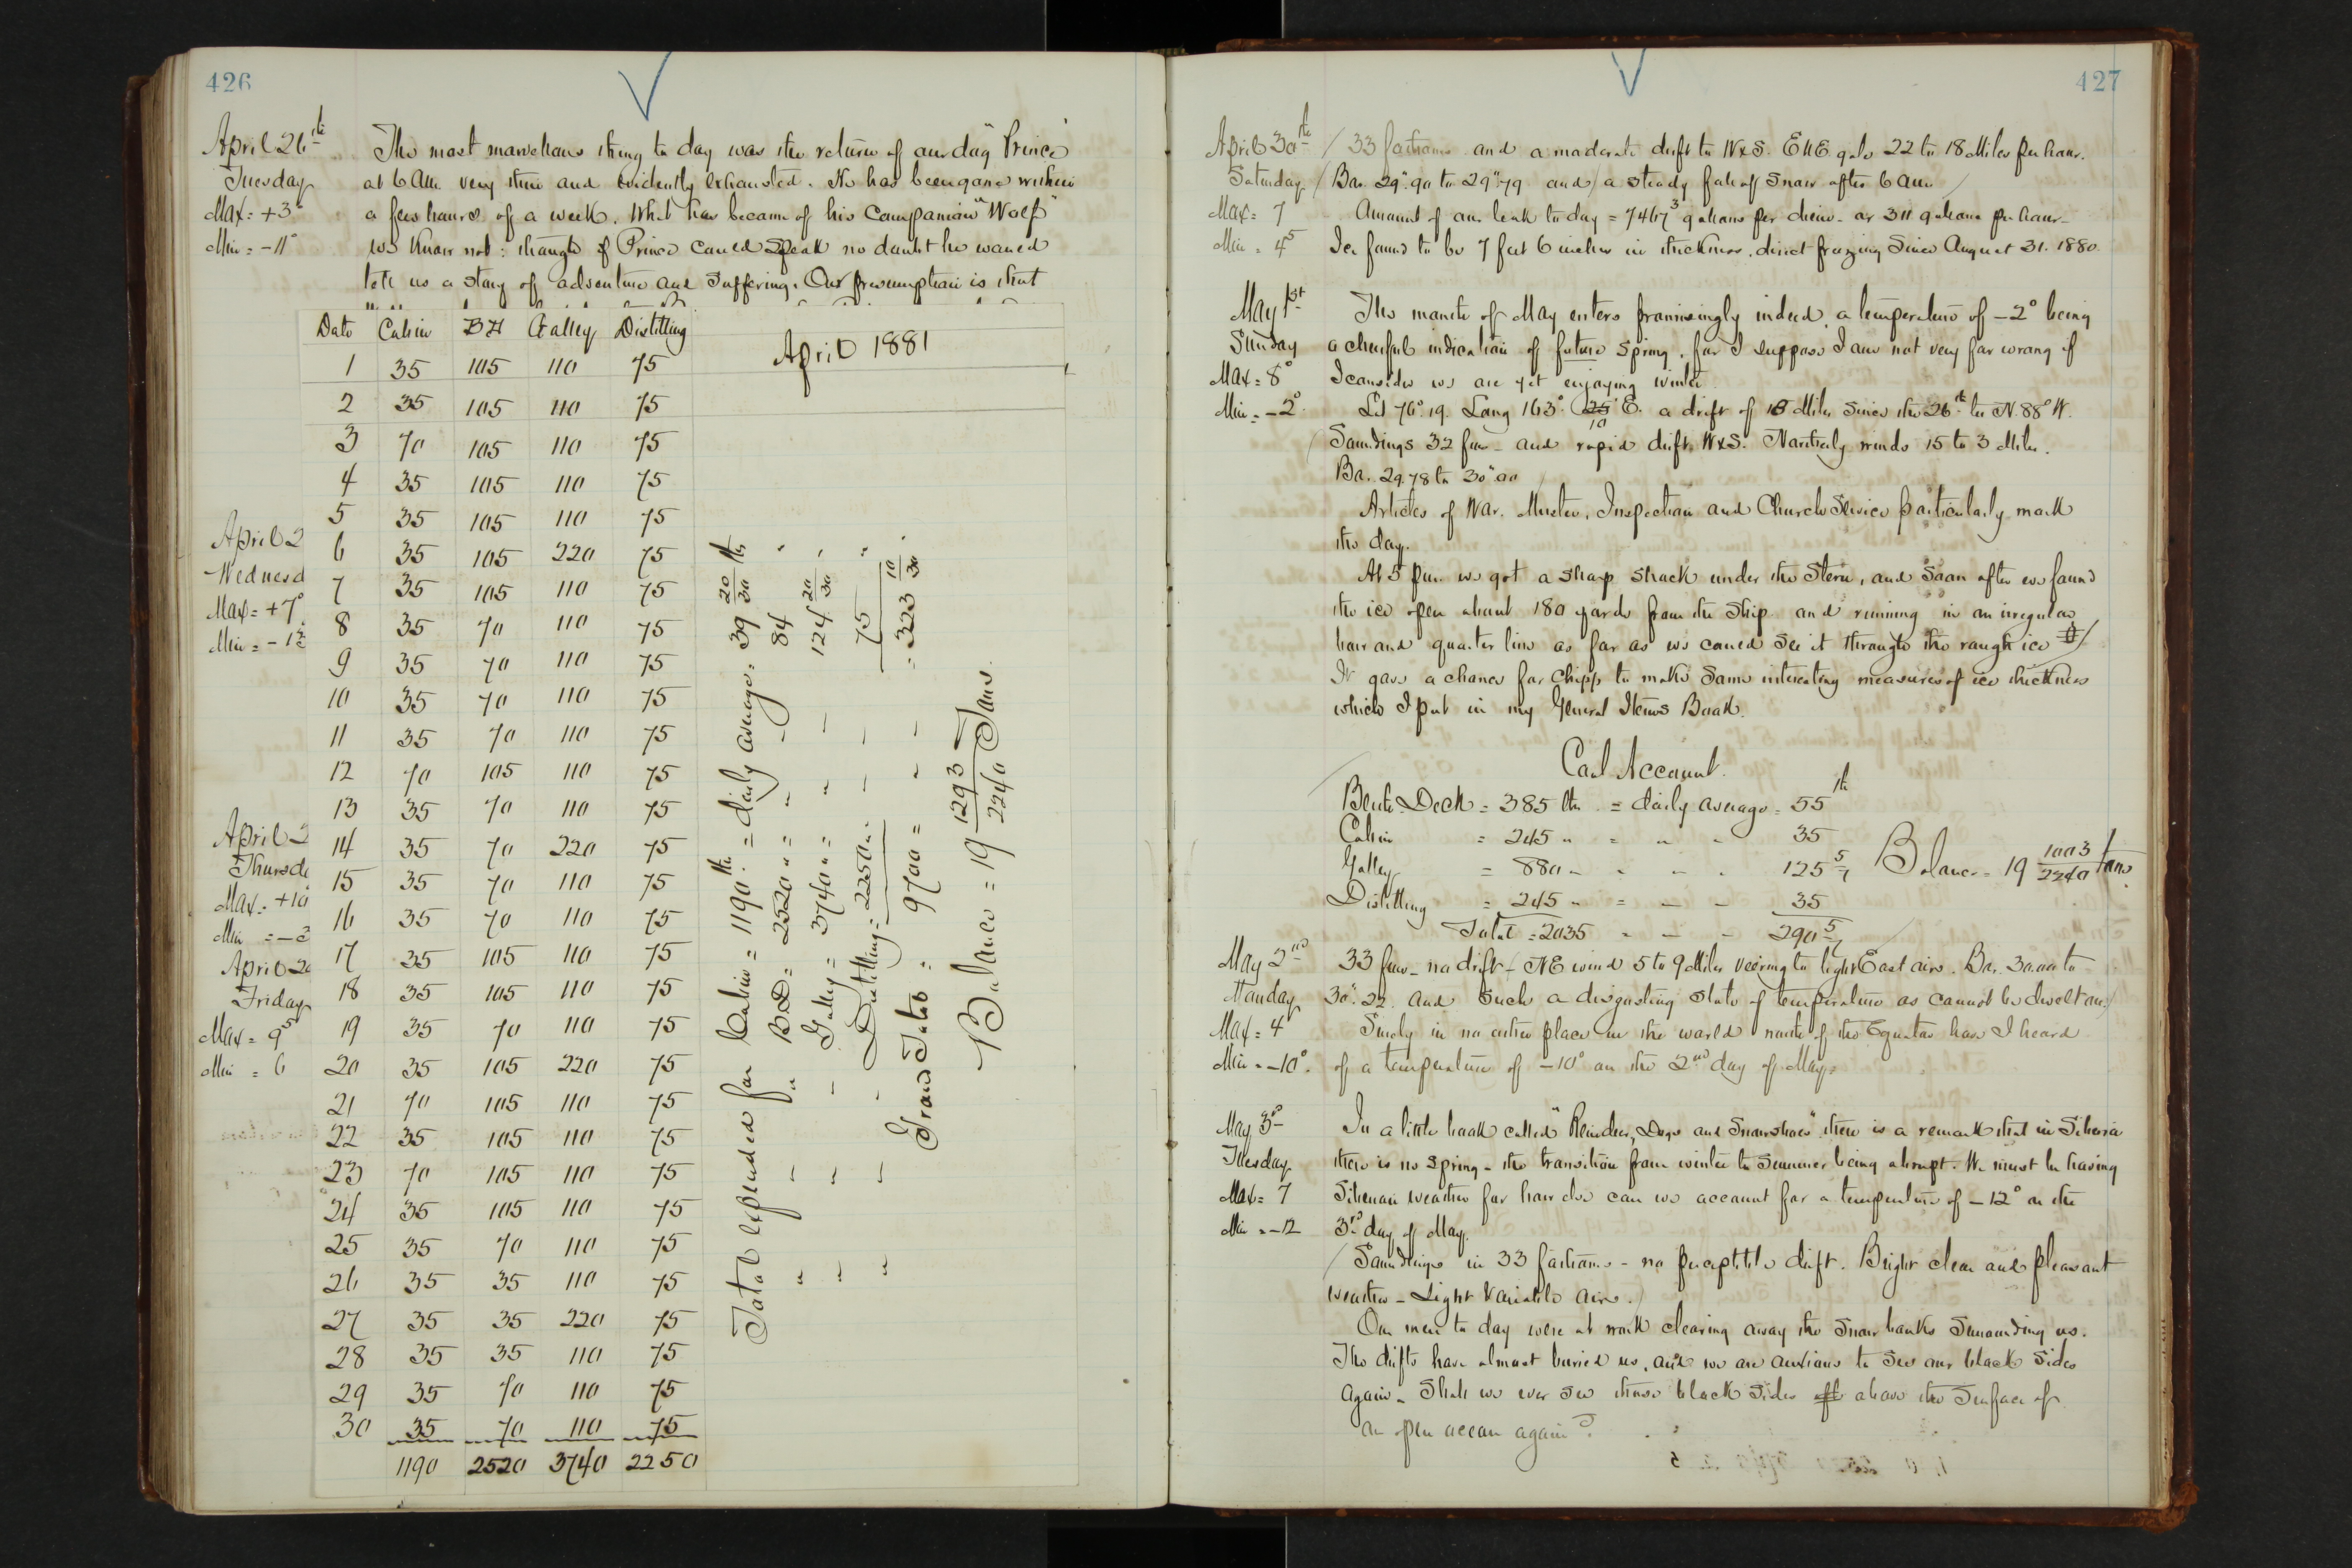 426
April 26th
Tuesday
Max = +3°
Min = -11°
The most marvellous thing to day was the return of our dog "Prince"
at 6 AM. very thin and evidently exhausted. He has been gone within
a few hours of a week. What has become of his Companion "Wolf"
we know not: though if Prince could speak no doubt he would
tell us a story of adventure and suffering. Our presumption is that
April 2
Wednesd
Max = +7°
Min = -1
April 2
Thursda
Max = +10
Min = -3
April 29
Friday
Max = 9.5
Min = 6
April 1881
Date Cabin BH Galley Distilling
1 35 105 110 75
2 35 105 110 75
3 70 105 110 75
4 35 105 110 75
5 35 105 110 75
6 35 105 220 75
7 35 105 110 75
8 35 70 110 75
9 35 70 110 75
10 35 70 110 75
11 35 70 110 75
12 70 105 110 75
13 35 70 110 75
14 35 70 220 75
15 35 70 110 75
16 35 70 110 75
17 35 105 110 75
18 35 105 110 75
19 35 70 110 75
20 35 105 220 75
21 70 105 110 75
22 35 105 110 75
23 70 105 110 75
24 35 105 110 75
25 35 70 110 75
26 35 35 110 75
27 35 35 220 75
28 35 35 110 75
29 35 70 110 75
30 35 70 110 75
1190 2520 3740 2250
Total expended for Cabin = 1190 lbs. = daily average = 39 20/30 lbs
" " " B.D. = 2520 " = " - 84 "
" " - Galley = 3740 " = " - 124 20/30 "
" " - Distilling = 2250 " - - 75 "
Grand Total = 9700 = " - = 323 10/30 "
Balance = 19 1293/2240 Tons.
427
April 30th
Saturday
Max = 7
Min = 4.5
33 fathoms and a moderate drift to WxS. ENE gale 22 to 18 Miles per hour.
Bar. 29".90 to 29".79 and a steady fall of Snow after 6 am
Amount of our leak to day = 7467.3 gallons per diem - or 311 gallons per hour -
Ice found to be 7 feet 6 inches in thickness, direct freezing since August 31. 1880.
May 1st
Sunday
Max = 8°
Min = -2°
The month of May enters promisingly indeed, a temperature of -2° being
a cheerful indication of future Spring, for I suppose I am not very far wrong if
I consider we are yet enjoying winter.
Lat 76°.19. Long 163°. 25' E. a drift of 18 Miles since the 26th to N. 88° W.
10
Soundings 32 fms - and rapid drift WxS. Northerly winds 15 to 3 Miles.
Bar. 29.78 to 30".00
Articles of War. Muster, Inspection and Church Service particularly mark
the day.
At 5 pm we got a sharp shock under the Stern, and soon after we found
the ice open about 180 yards from the Ship and running in an irregular
bow and quarter line as far as we could see it through the rough ice
It gave a chance for Chipp to make some interesting measures of ice thickness
which I put in my General Items Book.
Coal Account.
Berth Deck = 385 lbs = daily average = 55 lbs
Cabin = 245 " = " - 35
Galley = 880 " " " - 125 5/7
Distilling = 245 " = - - 35
Total = 2035 - - - 290 5/7
Balance = 19 1003/2240 tons.
May 2nd
Monday
Max = 4°
Min = -10°.
33 fms - no drift - NE wind 5 to 9 Miles veering to light East airs. Bar. 30.00 to
30".22. and such a disgusting state of temperature as cannot be dwelt on.
Surely in no other place in the world north of the Equator have I heard
of a temperature of -10° on the 2nd day of May.
May 3rd
Tuesday
Max = 7
Min = -12
In a little book called "Reindeer, Dogs and Snowshoes" there is a remark that in Siberia
there is no spring - the transition from winter to Summer being abrupt. We must be having
Siberian weather for how else can we account for a temperature of -12° on the
3rd day of May.
Soundings in 33 fathoms - no perceptible drift. Bright clear and pleasant
weather - Light variable airs.
Our men to day were at work clearing away the Snow banks Surrounding us.
The drifts have almost buried us, and we are anxious to see our black sides
again - Shall we ever see those black sides off above the surface of
an open ocean again?